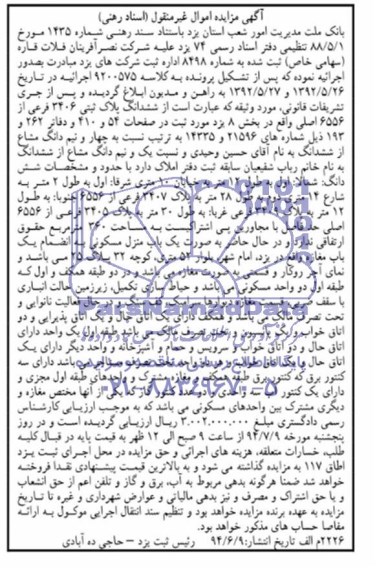 آگهی مزایده اموال غیرمنقول (اسناد رهنی)
بانک ملت مدیریت امور شعب استان یزد باستناد سند رهنی شماره ۱۴۳۵ مورخ
۸۸/۵/۱ تنظیمی دفتر اسناد رسمی ۷۴ یزد علیه شرکت نصرآفرینان فلات قاره
(سهامی خاص) ثبت شده به شماره ۸۴۹۸ اداره ثبت شرکت های یزد مبادرت بصدور
اجرائیه نموده که پس از تشکیل پرونده به کلاسه ۹۲۰۰۵۷۵ اجرائیه در تاریخ
۱۳۹۲/۵/۲۶ و ۱۳۹۲/۵/۲۷ به راهن و مدیون ابلاغ گردیده و پس از جری
تشریفات قانونی، مورد وثیقه که عبارت است از ششدانگ پلاک ثبتی ۳۴۰۶ فرعی از
۶۵۵۶ اصلی واقع در بخش ۸ یزد مورد ثبت در صفحات ۵۴ و ۴۱۰ و دفاتر ۲۶۲ و
۱۹۳ ذیل شماره های ۲۱۵۹۶ و ۱۴۳۳۵ به ترتیب نسبت به چهار و نیم دانگ مشاع
از ششدانگ به نام آقای حسین وحیدی و نسبت یک و نیم دانگ مشاع از ششدانگ
به نام خانم رباب شفیعیان سابقه ثبت دفتر املاک دارد با حدود و مشخصات شش
دانگ: شمالا: اول به طول متر به خیابان ۱۰ متری شرقا: اول به طول ۲ متر به
شارع ۱۴ متری دوم بطول ۲۸ متر به پلاک ۳۴۰۷ فرعی از ۶۵۵۶ جنوبا: به طول
۱۲ متر به پلاک فرعی غربا: به طول ۳۰ متر به پلاک ۳۴۰۵ فرعی از ۶۵۵۶
اصلی حد فاصل با مجاورین پی اشتراکیست به مساحت ۳۶۰ مترمربع حقوق
ارتفاقی ندارد و در حال حاضر به صورت یک باب منزل مسکونی به انضمام یک
باب مغازه واقع در یزد، امام شهر بلوار ۵۴ متری، کوچه ۳۲ پلاک ۲۵ می باشد و
نمای آجر روکار و قسمتی به صورت مغازه می باشد و در دو طبقه همکف و اول که
طبقه اول دو واحد مسکونی می باشد و حیاط سازی تکمیل، زیرزمین حالت انباری
با سقف ضربی قسمت مغازه دیوارها سرامیک در حال فعالیت نانوایی و
تحت تصرف مالک می باشد و همکف دارای یک اتاق حال و یک اتاق پذیرایی و دو
اتاق خواب و یک آشپزخانه و تحت تصرف مالک می باشد طبقه اول یک واحد دارای
اتاق حال و دو اتاق خواب و سرویس و حمام و آشپزخانه و واحد دیگر دارای یک
اتاق حال و یک اتاق خواب و می باشد دارای سه
کنتور برق که کنتور برق طبقه همکف و مغازه مشترک و واحدهای طبقه اول مجزی و
دارای یک کنتور آب و کنتور گاز که یکی از آنها مختص مغازه و
دیگری مشترک بین واحدهای مسکونی می باشد که به موجب ارزیابی کارشناس
رسمی دادگستری مبلغ ۳.۰۰۲.۰۰۰.۰۰۰ ریال ارزیابی گردیده است و در روز
پنجشنبه مورخه ۹۴/۷/۹ از ساعت ۹ صبح الی ۱۲ ظهر به قیمت پایه در قبال کلیه
طلب، خسارات متعلقه، هزینه های اجرائی و حق مزایده در محل اجرای ثبت یزد
اطاق ۱۱۷ به مزایده گذاشته می شود و به بالاترین قیمت پیشنهادی نقدا فروخته
خواهد شد ضمنا هرگونه بدهی مربوط به آب، برق و گاز و تلفن اعم از حق انشعاب
و یا حق اشتراک و مصرف و نیز بدهی مالیاتی و عوارض شهرداری و غیره تا تاریخ
مزایده به عهده برنده مزایده خواهد بود و تنظیم سند انتقال اجرایی موکول به ارائه
مفاصا حساب های مذکور خواهد بود.
۲۲۲۶م الف تاریخ انتشار: ۹۴/۶/۹ رئیس ثبت یزد – حاجی ده آبادی
ParsNamadData
۰۲۱-۸۸۳۴۹۶۷۰-۵